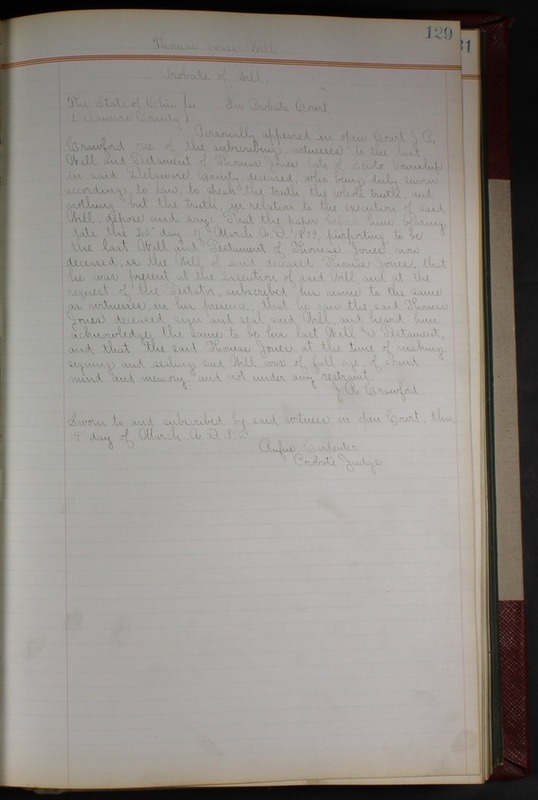 129
31
Thomas Jones Will
Probate of Will.
The State of Ohio ss In Probate Court
Delaware County
Personally appeared in open Court J. A.
Crawford one of the subscribing witnesses to the last
Will and Testament of Thomas Jones late of Scioto Township
in said Delaware County, deceased, who being duly sworn
according to law, to speak the truth, the whole truth, and
nothing but the truth in relation to the execution of said
Will, depose and say: That the paper before him bearing
date the 25" day of March A.D. 1879, purporting to be
the last Will and Testament of Thomas Jones now
deceased, is the Will of said deceased Thomas Jones, that
he was present at the execution of said Will, and at the
request of the Testator, subscribed his name to the same
as witnesses in his presence, that he saw the said Thomas
Jones deceased, sign and seal said Will, and heard him
acknowledge the same to be his last Will and Testament,
and that the said Thomas Jones at the time of making
signing and sealing said Will was of full age, of sound
mind and memory and not under any restraint.
J. A. Crawford
Sworn to and subscribed by said witness in open Court, this
day of March A.D.
Rufus Carpenter
Probate Judge